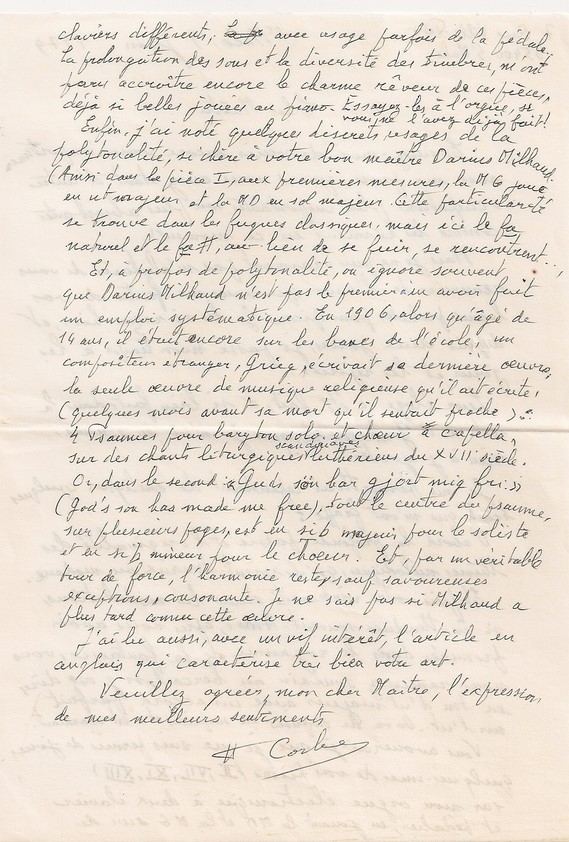 claviers différents, avec usage parfois de la pédale.
La prolongation des sons et la diversité des timbres, m'ont
paru accroître encore le charme rêveur de ces pièces,
déjà si belles jouées au piano. Essayez-les à l'orgue, si
vous ne l'avez déjà fait!
Enfin, j'ai noté quelques discrets usages de la
polytonalité, si chère à votre bon maître Darius Milhaud.
(Ainsi dans la pièce I, aux premières mesures, la MG joue
en ut majeur et la MD en sol majeur. Cette particularité
se trouve dans les fugues classiques, mais ici le fa
naturel et le fa#, au lieu de se fuir, se rencontrent...,
Et, à propos de polytonalité, on ignore souvent
que Darius Milhaud n'est pas le premier à en avoir fait
un emploi systématique. En 1906, alors qu'âgé de
14 ans, il était encore sur les bancs de l'école, un
compositeur étranger, Grieg, écrivait sa dernière œuvre,
la seule œuvre de musique religieuse qu'il ait écrite,
(quelques mois avant sa mort qu'il sentait proche) :
4 Psaumes pour baryton solo et chœur a capella,
sur des chants liturgiques scandinaves luthériens du XVIIe siècle.
Or, dans le second « Guds søn har gjort mig fri »
(God's son has made me free), tout le centre du psaume,
sur plusieurs pages, est en si b majeur pour le soliste
et en si b mineur pour le chœur. Et, par un véritable
tour de force, l'harmonie reste, sauf savoureuses
exceptions, consonante. Je ne sais pas si Milhaud a
plus tard connu cette œuvre.
J'ai lu aussi, avec un vif intérêt, l'article en
anglais qui caractérise très bien votre art.
Veuillez agréer, mon cher Maître, l'expression
de mes meilleurs sentiments
H